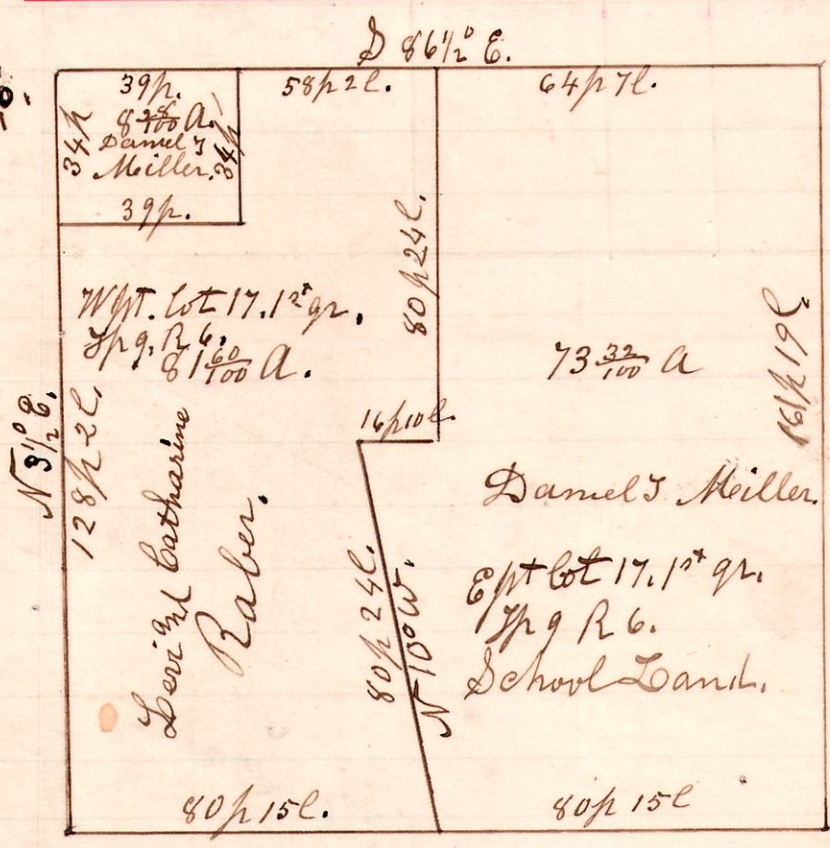 S 86 1/2° E.
39p.
58p 2l.
64p 7l.
34p
8 28/100 A.
Daniel J
Miller.
34p
39p.
80p 24l.
Wpt. Lot 17. 1st qr.
Tp 9. R 6.
81 60/100 A.
73 32/100 A
161p 19l
16p 10l.
N 3 1/2° E.
128p 2l.
Levi and Catharine
Raber.
Daniel J Miller.
Ept Lot 17. 1st qr.
Tp 9 R 6.
School Land.
80p 24l.
N 10° W.
80p 15l.
80p 15l